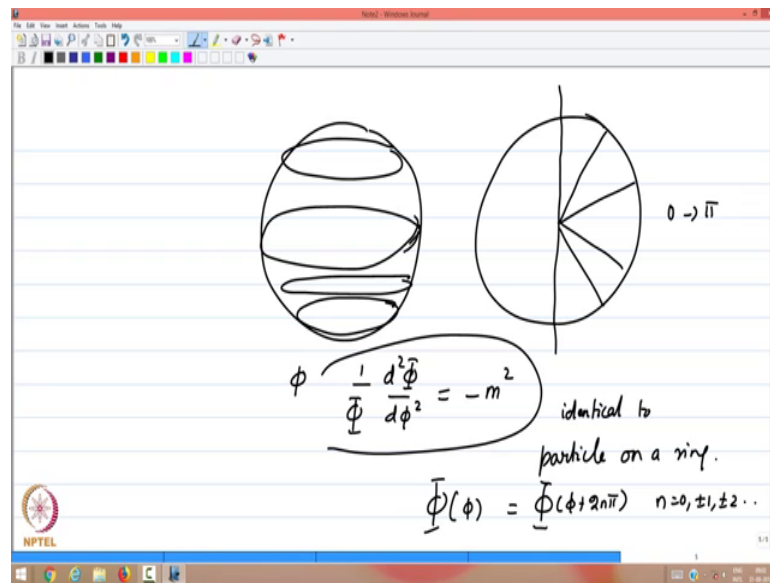 Note2 - Windows Journal
File Edit View Insert Actions Tools Help
B I
0 → π
ϕ 1/Φ d²Φ/dϕ² = -m²
identical to
particle on a ring.
Φ(ϕ) = Φ(ϕ+2nπ) n=0, ±1, ±2 ..
NPTEL
5/5